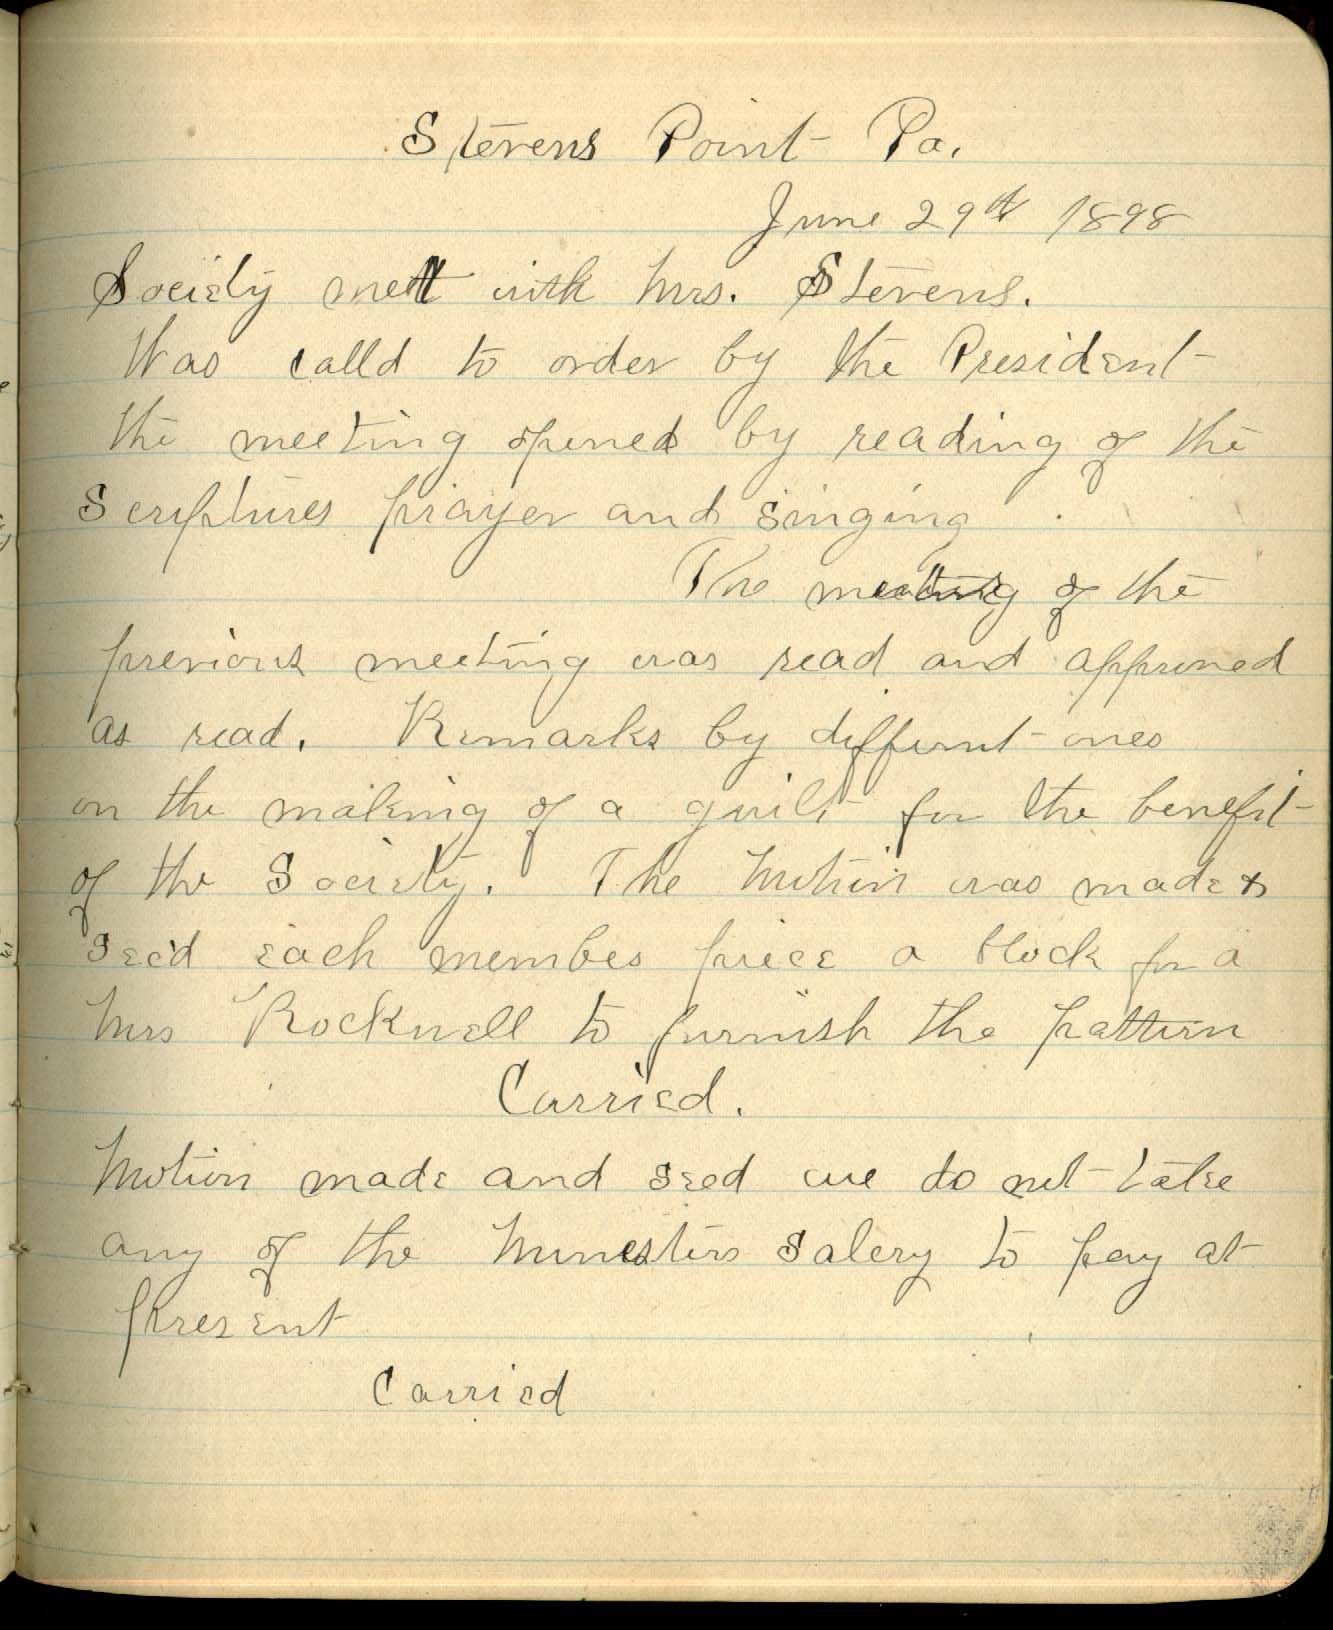 Stevens Point Pa.
June 29th 1898
Society mett with Mrs. Stevens.
Was calld to order by the President
the meeting opened by reading of the
Scriptures prayer and singing
The meeting of the
previous meeting was read and approved
as read. Remarks by differnt ones
on the making of a quilt for the benefit
of the Society. The Motion was made &
sec'd each membes piece a block for a
Mrs Rockwell to furnish the pattern
Carried.
Motion made and secd we do not take
any of the Minesters Salery to pay at
present
Carried